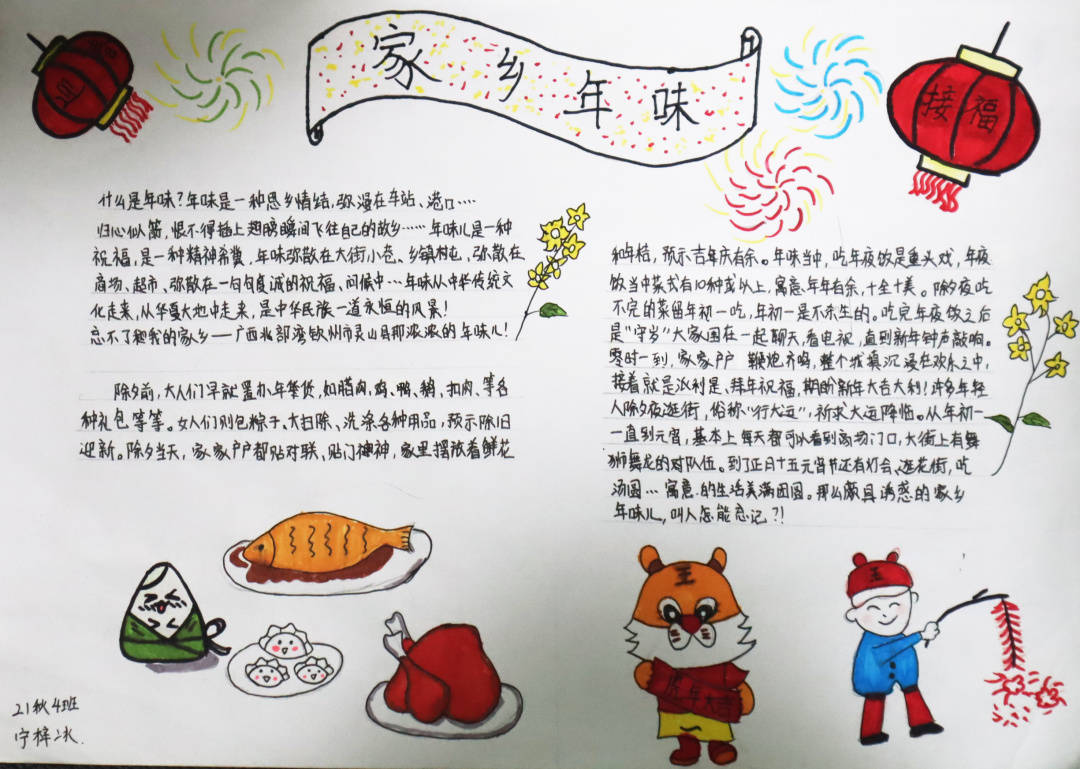 家乡年味
迎
接福
什么是年味?年味是一种思乡情结,弥漫在车站、港口……
归心似箭,恨不得插上翅膀瞬间飞往自己的故乡……年味儿是一种
祝福,是一种精神希冀。年味弥散在大街小巷、乡镇村屯,弥散在
商场、超市、弥散在一句句虔诚的祝福、问候中…年味从中华传统文
化走来,从华夏大地中走来,是中华民族一道永恒的风景!
忘不了我的家乡——广西北部湾钦州市灵山县那浓浓的年味儿!
除夕前,大人们早就置办年货,如腊肉,鸡、鸭、鹅、扣肉、等各
种礼包等等。女人们则包粽子、大扫除、洗涤各种用品,预示除旧
迎新。除夕当天,家家户户都贴对联、贴门神,家里摆放着鲜花
和年桔,预示吉年庆有余。年味当中,吃年夜饭是重头戏,年夜
饭当中菜式有10种或以上,寓意年年有余,十全十美。除夕夜吃
不完的菜留年初一吃,年初一是不杀生的。吃完年夜饭之后
是"守岁"大家围在一起聊天,看电视,直到新年钟声敲响。
零时一到,家家户户鞭炮齐鸣,整个城镇沉浸在欢乐之中,
接着就是派利是、拜年祝福,期盼新年大吉大利!许多年轻
人除夕夜逛街,俗称"行大运",祈求大运降临。从年初一
一直到元宵,基本上每天都可以看到商场门口,大街上有舞
狮舞龙的对队伍。到了正月十五元宵节还有灯会、逛花街,吃
汤圆…寓意的生活美满团圆。那么颇具诱惑的家乡
年味儿,叫人怎能忘记?!
王
虎年大吉
王
21秋4班
宁梓冰.